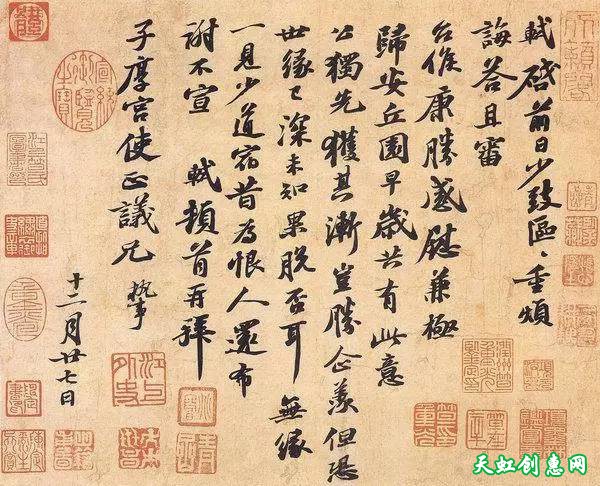 軾啓前日少致區〻重煩
誨答且審
台候康勝感慰兼極
歸安丘園早歲共有此意
公獨先獲其漸豈勝企羨但恐
世緣已深未知果脫否耳無緣
一見少道宿昔為恨人還布
謝不宣 軾頓首再拜
子厚宮使正議兄 執事
十二月廿七日
宣統御覽之寶
天虹创意网